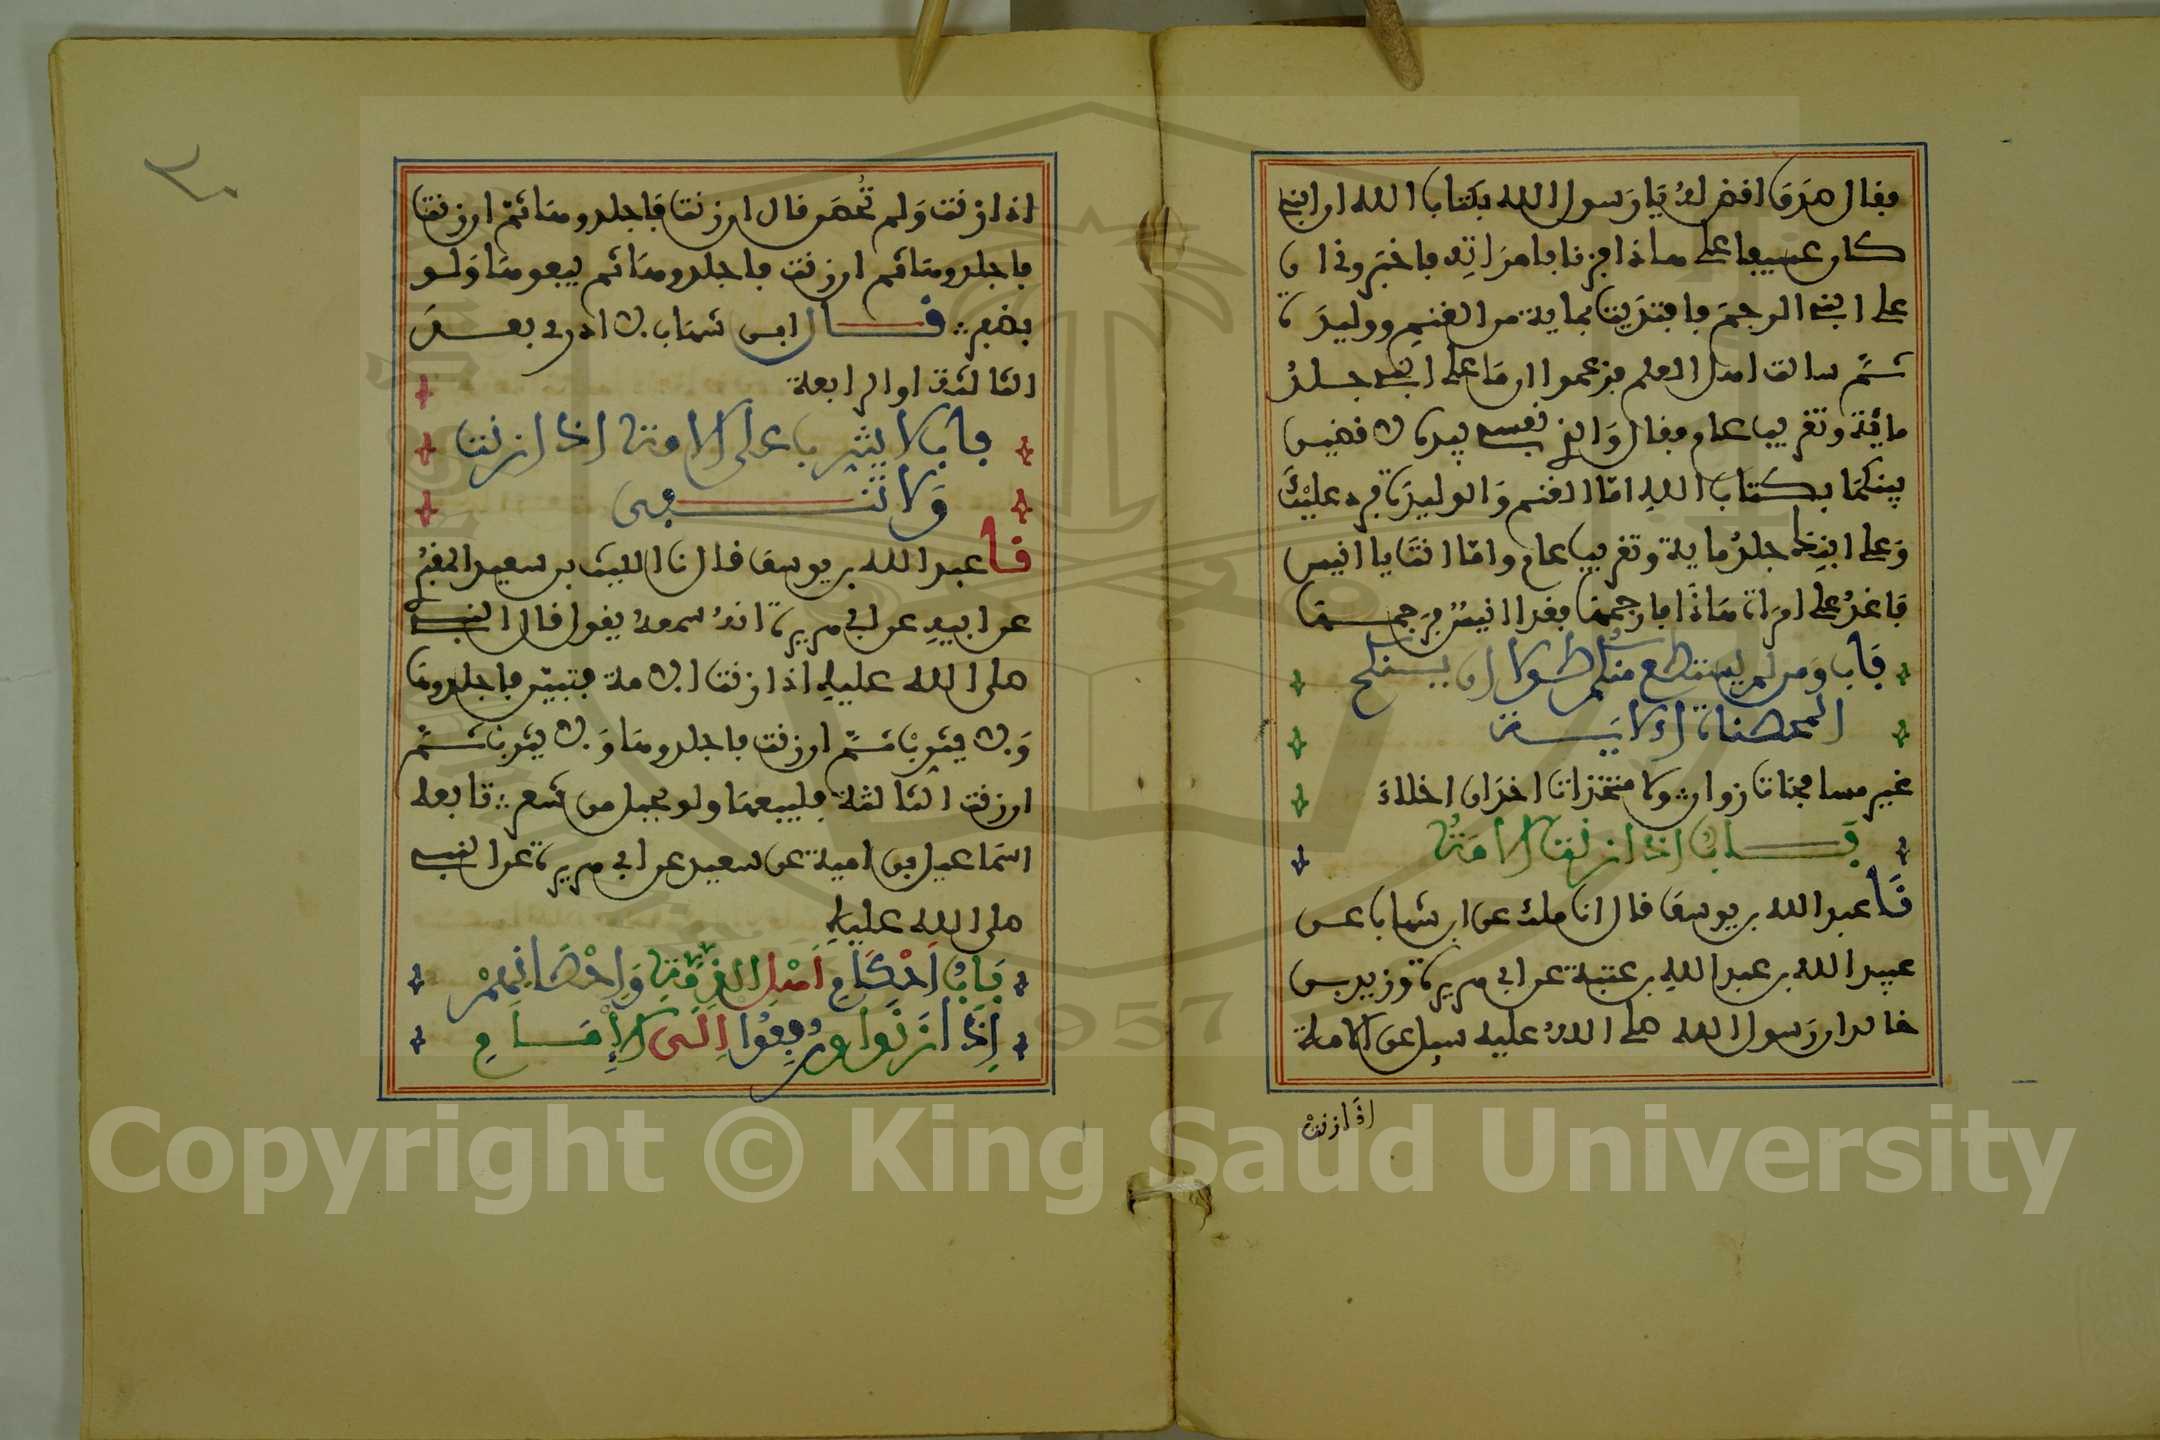 فقال صدق اقض له يا رسول الله بكتاب الله ان ابني
كان عسيفا على هاذا فزنا بامراته فاخبروني ان
على ابني الرجم فافتديت بماية من الغنم ووليدة
ثم سالت اهل العلم فزعموا ان ما على ابني جلد
مائة وتغريب عام فقال والذي نفسي بيده لاقضين
بينكما بكتاب الله اما الغنم والوليدة فرد عليك
وعلى ابنك جلد ماية وتغريب عام واما انت يا انيس
فاغد على امراة هاذا فارجمها فغدا انيس فرجمها
باب ومن لم يستطع منكم طولا ان ينكح
المحصنات الاية
غير مسافحات زوان ولا متخذات اخدان اخلاء
باب اذا زنت الامة
نا عبد الله بن يوسف قال انا ملك عن ابن شهاب عن
عبيد الله بن عبد الله بن عتبة عن ابي هريرة وزيد بن
خالد ان رسول الله صلى الله عليه سيل عن الامة
اذا زنت
اذا زنت ولم تحصن قال ان زنت فاجلدوها ثم ان زنت
فاجلدوها ثم ان زنت فاجلدوها ثم بيعوها ولو
بضفير قال ابن شهاب لا ادري بعد
الثالثة او الرابعة
باب لا يثرب على الامة اذا زنت
ولا تنفى
نا عبد الله بن يوسف قال نا الليث بن سعيد المقبري
عن ابيه عن ابي هريرة انه سمعه يقول قال النبي
صلى الله عليه اذا زنت الامة فتبين فاجلدوها
ولا يثرب ثم ان زنت فاجلدوها ولا يثرب ثم
ان زنت الثالثة فليبعها ولو بحبل من شعر تابعه
اسماعيل بن امية عن سعيد عن ابي هريرة عن النبي
صلى الله عليه
باب احكام اهل الذمة واحصانهم
اذا زنوا ورفعوا الى الامام
Copyright © King Saud University
1957